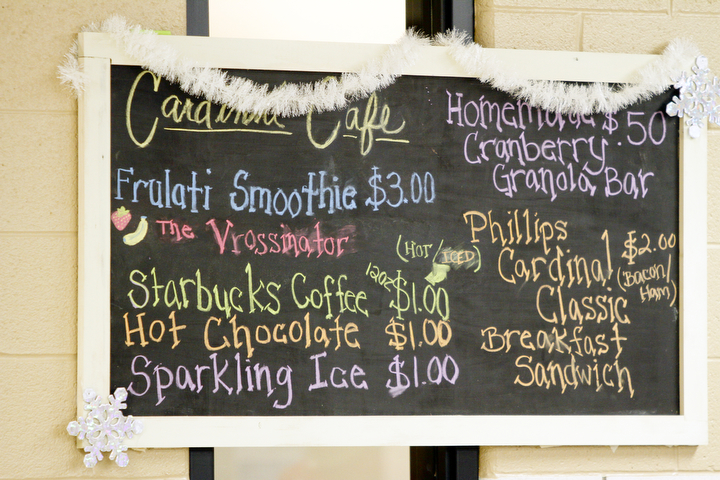 Cardinal Cafe
Frulati Smoothie $3.00
The Vrossinator
(Hot/ICED)
Starbucks Coffee 12oz $1.00
Hot Chocolate $1.00
Sparkling Ice $1.00
Homemade $.50
Cranberry
Granola Bar
Phillips
Cardinal $2.00
(Bacon/
Ham)
Classic
Breakfast
Sandwich